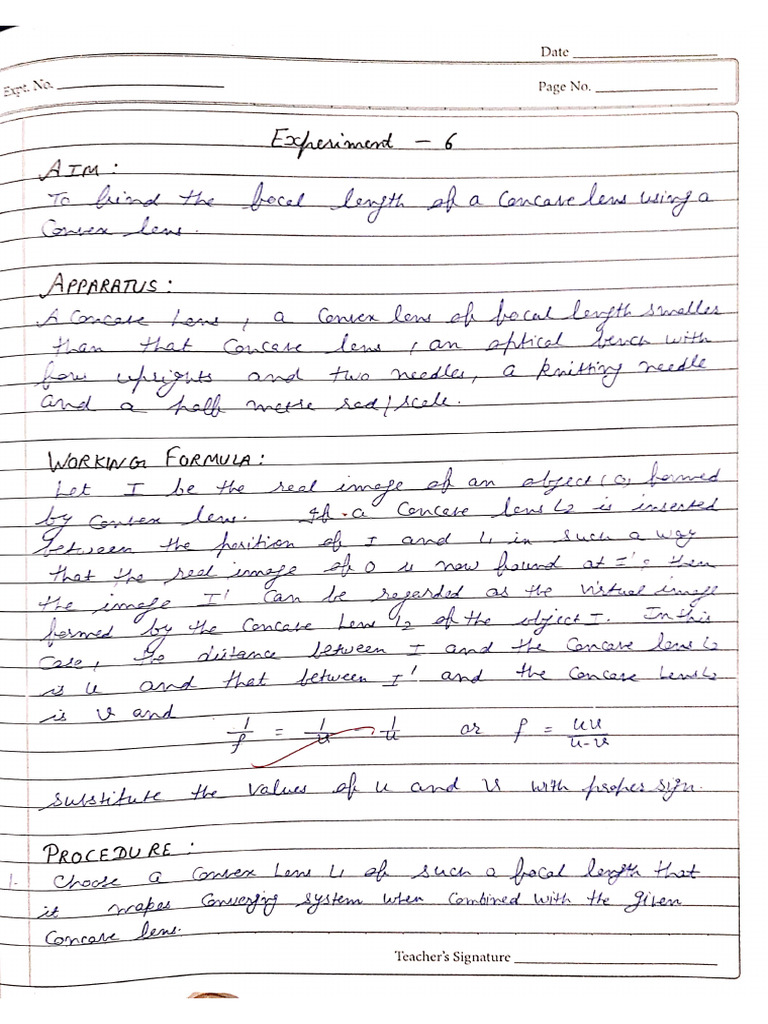 Date
Expt. No.
Page No.
Experiment - 6
AIM:
To find the focal length of a concave lens using a
convex lens.
APPARATUS:
A concave Lens, a convex lens of focal length smaller
than that concave lens, an optical bench with
four uprights and two needles, a knitting needle
and a half metre rod/scale.
WORKING FORMULA:
Let I be the real image of an object (O) formed
by convex lens. If a concave lens L2 is inserted
between the position of I and L1 in such a way
that the real image of O is now found at I' then
the image I' can be regarded as the virtual image
formed by the concave Lens L2 of the object I. In this
case, the distance between I and the concave lens L2
is u and that between I' and the concave Lens L2
is v and
1/f = 1/v - 1/u or f = uv/u-v
substitute the values of u and v with proper sign.
PROCEDURE:
1. Choose a convex Lens L1 of such a focal length that
it makes converging system when combined with the given
concave lens.
Teacher's Signature